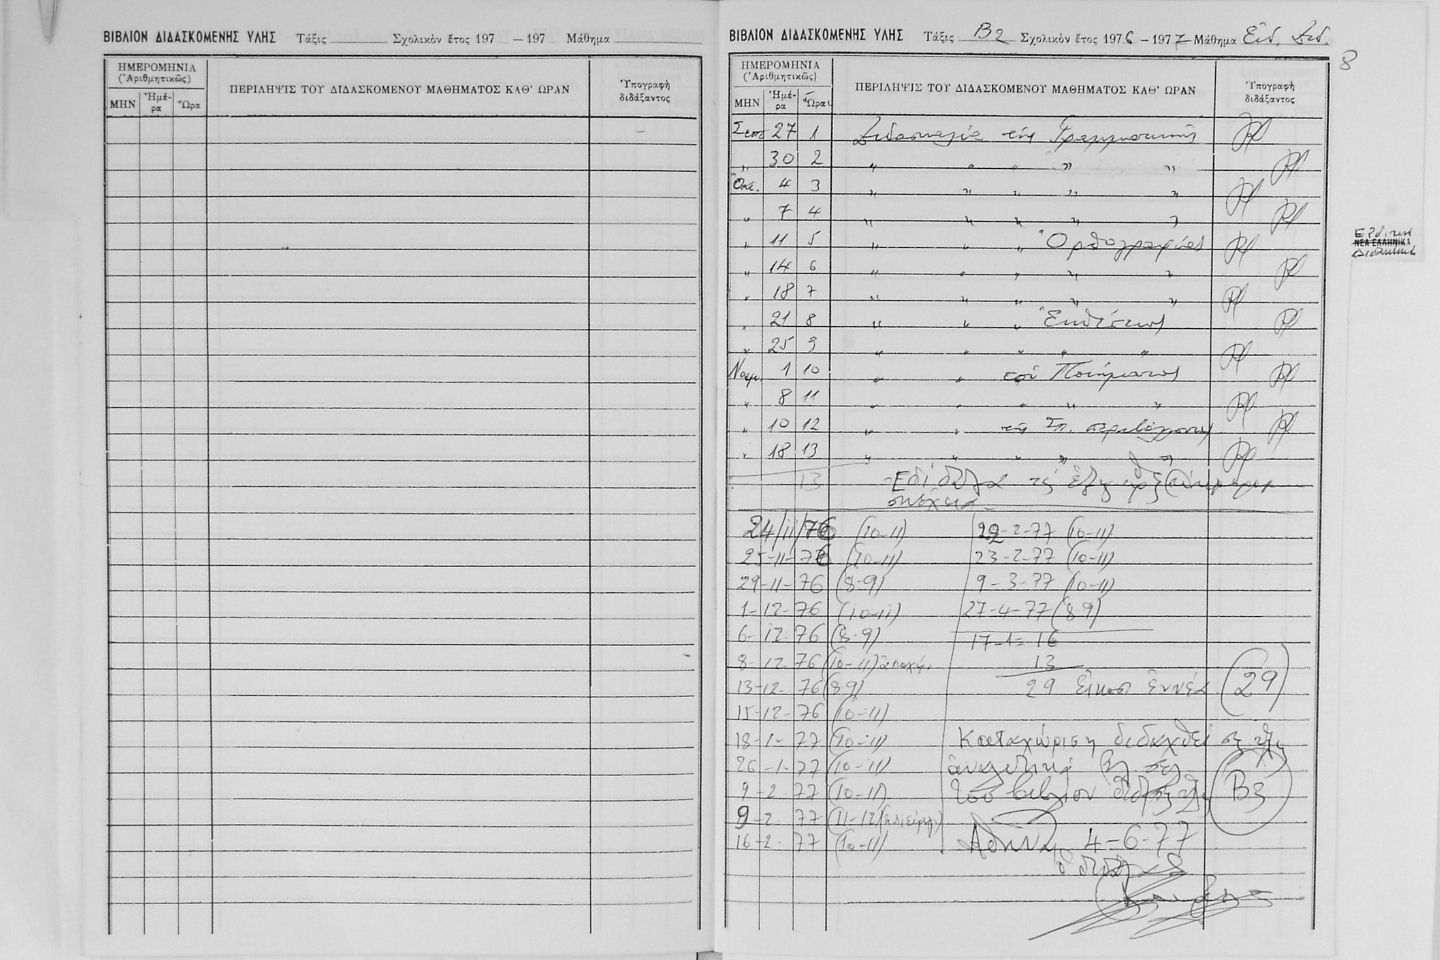 ΒΙΒΛΙΟΝ ΔΙΔΑΣΚΟΜΕΝΗΣ ΥΛΗΣ Τάξις Σχολικὸν ἔτος 197 — 197 Μάθημα
ΗΜΕΡΟΜΗΝΙΑ
(Ἀριθμητικῶς)
ΜΗΝ Ἡμέ-ρα Ὥρα
ΠΕΡΙΛΗΨΙΣ ΤΟΥ ΔΙΔΑΣΚΟΜΕΝΟΥ ΜΑΘΗΜΑΤΟΣ ΚΑΘ' ΩΡΑΝ
Ὑπογραφὴ
διδάξαντος
ΒΙΒΛΙΟΝ ΔΙΔΑΣΚΟΜΕΝΗΣ ΥΛΗΣ Τάξις Β2 Σχολικὸν ἔτος 1976 -1977 Μάθημα Εἰδ. Διδ.
8
ΗΜΕΡΟΜΗΝΙΑ
(Ἀριθμητικῶς)
ΜΗΝ Ἡμέ-ρα Ὥραι
ΠΕΡΙΛΗΨΙΣ ΤΟΥ ΔΙΔΑΣΚΟΜΕΝΟΥ ΜΑΘΗΜΑΤΟΣ ΚΑΘ' ΩΡΑΝ
Ὑπογραφὴ
διδάξαντος
Σεπ 27 1 Διδασκαλία τῆς Γραμματικῆς
" 30 2 " " " " "
Ὀκτ. 4 3 " " " " "
" 7 4 " " " " "
" 11 5 " " " Ὀρθογραφίας
" 14 6 " " " " "
" 18 7 " " " " "
" 21 8 " " " Ἐκθέσεως
" 25 9 " " " " "
Νοεμ. 1 10 " " τοῦ Ποιήματος
" 8 11 " " " "
" 10 12 " " τῆς
" 18 13 " " " " "
13 Ἐδίδαξα τὰς ἑξῆς
συνέχεια
24/11/76 (10-11)
25-11-76 (10-11)
29-11-76 (8-9)
1-12-76 (10-11)
6-12-76 (8-9)
8-12-76 (10-11)
13-12-76 (8-9)
15-12-76 (10-11)
18-1-77 (10-11)
26-1-77 (10-11)
9-2-77 (10-11)
9-2-77 (11-12)
16-2-77 (10-11)
22-2-77 (10-11)
23-2-77 (10-11)
9-3-77 (10-11)
27-4-77 (8-9)
17-1=16
13
29 εἴκοσι ἐννέα (29)
Καταχώριση διδαχθείσης ὕλης
ἀναλυτικὰ βλ. σελ.
τοῦ βιβλίου διδ. ὕλης Β3
Ἀθήνα 4-6-77
ΝΕΑ ΕΛΛΗΝΙΚΑ